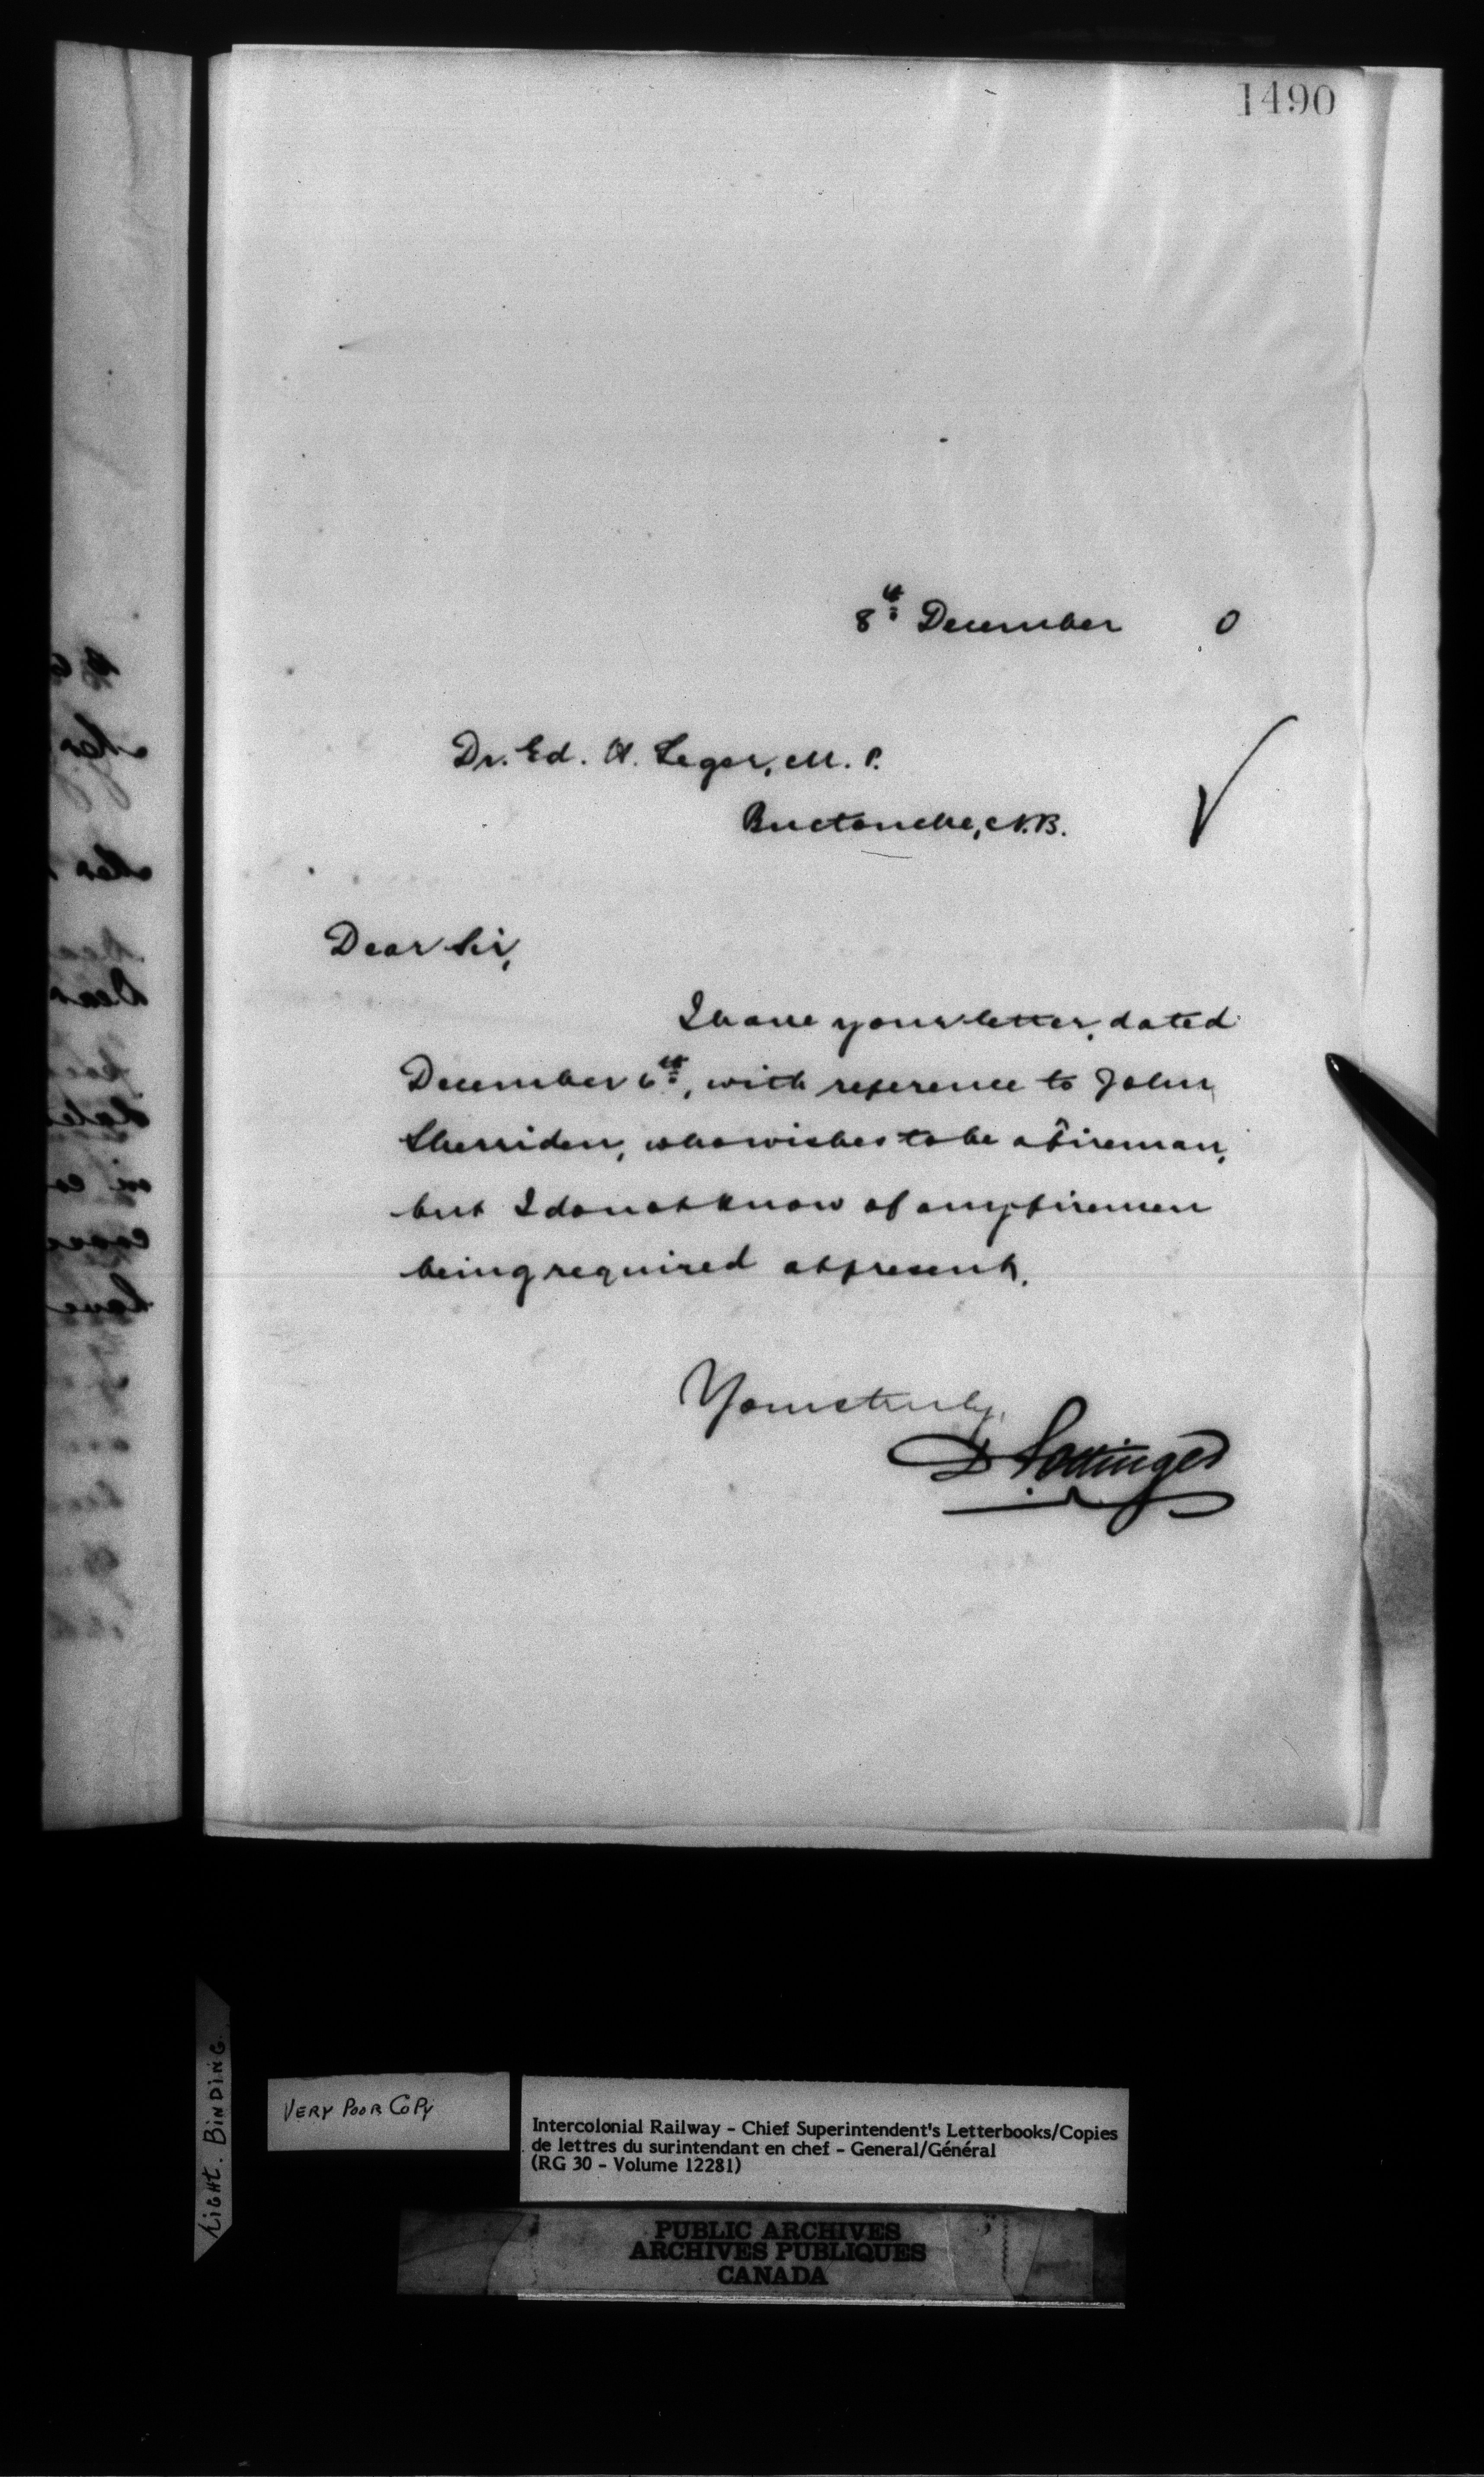 1490
8th December 0
Dr. Ed. H. Leger, M. P.
Buctouche, N.B.
Dear Sir,
I have your letter, dated
December 6th, with reference to John
Sherriden, who wishes to be a fireman,
but I do not know of any firemen
being required at present.
Yours truly,
D Pottinger
TIGHT. BINDING
VERY POOR COPY
Intercolonial Railway - Chief Superintendent's Letterbooks/Copies
de lettres du surintendant en chef - General/Général
(RG 30 - Volume 12281)
PUBLIC ARCHIVES
ARCHIVES PUBLIQUES
CANADA